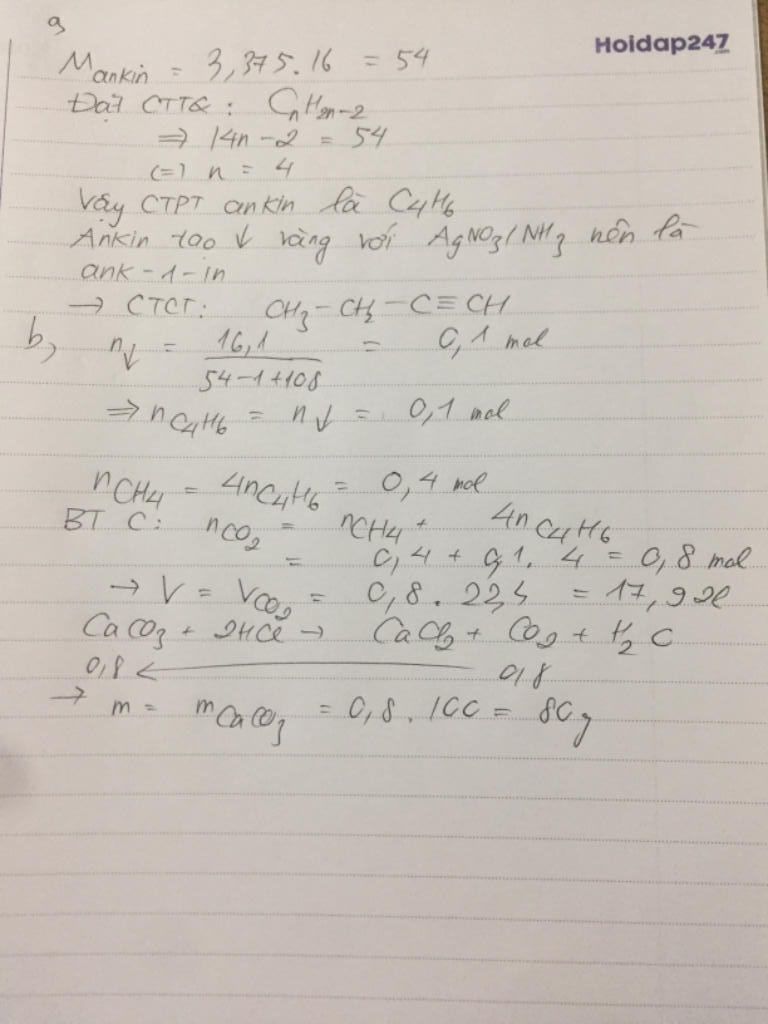 Hoidap247.com
a
M ankin = 3,375.16 = 54
Đặt CTTQ: CnH2n-2
⇒ 14n - 2 = 54
(=) n = 4
Vậy CTPT ankin là C4H6
Ankin tạo ↓ vàng với AgNO3/NH3 nên là
ank-1-in
→ CTCT: CH3 - CH2 - C ≡ CH
b, n↓ = 16,1 / (54-1+108) = 0,1 mol
⇒ nC4H6 = n↓ = 0,1 mol
nCH4 = 4nC4H6 = 0,4 mol
BT C: nCO2 = nCH4 + 4nC4H6
= 0,4 + 0,1. 4 = 0,8 mol
→ V = VCO2 = 0,8 . 22,4 = 17,92l
CaCO3 + 2HCl → CaCl2 + CO2 + H2O
0,8 ← 0,8
→ m = mCaCO3 = 0,8 . 100 = 80g